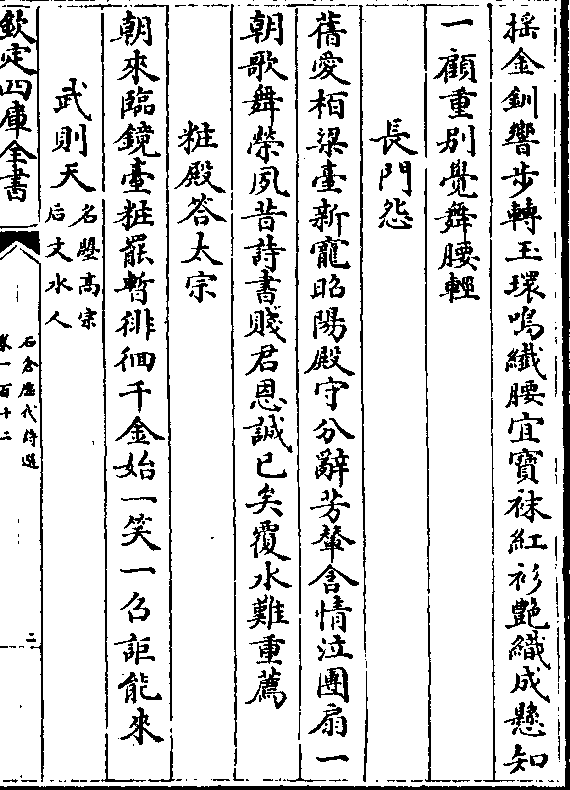 揺金釧響步轉玉環鳴纎腰宜寳袜紅衫艶織成懸知
一顧重别覺舞腰輕
長門怨
舊愛栢梁臺新寵昭陽殿守分辭芳輦含情泣團扇一
朝歌舞榮夙昔詩書賤君恩誠已矣覆水難重薦
粧殿答太宗
朝來臨鏡臺粧罷暫徘徊千金始一笑一召詎能來
武則天名曌高宗
后文水人
欽定四庫全書
石倉歴代詩選
卷一百十二
二